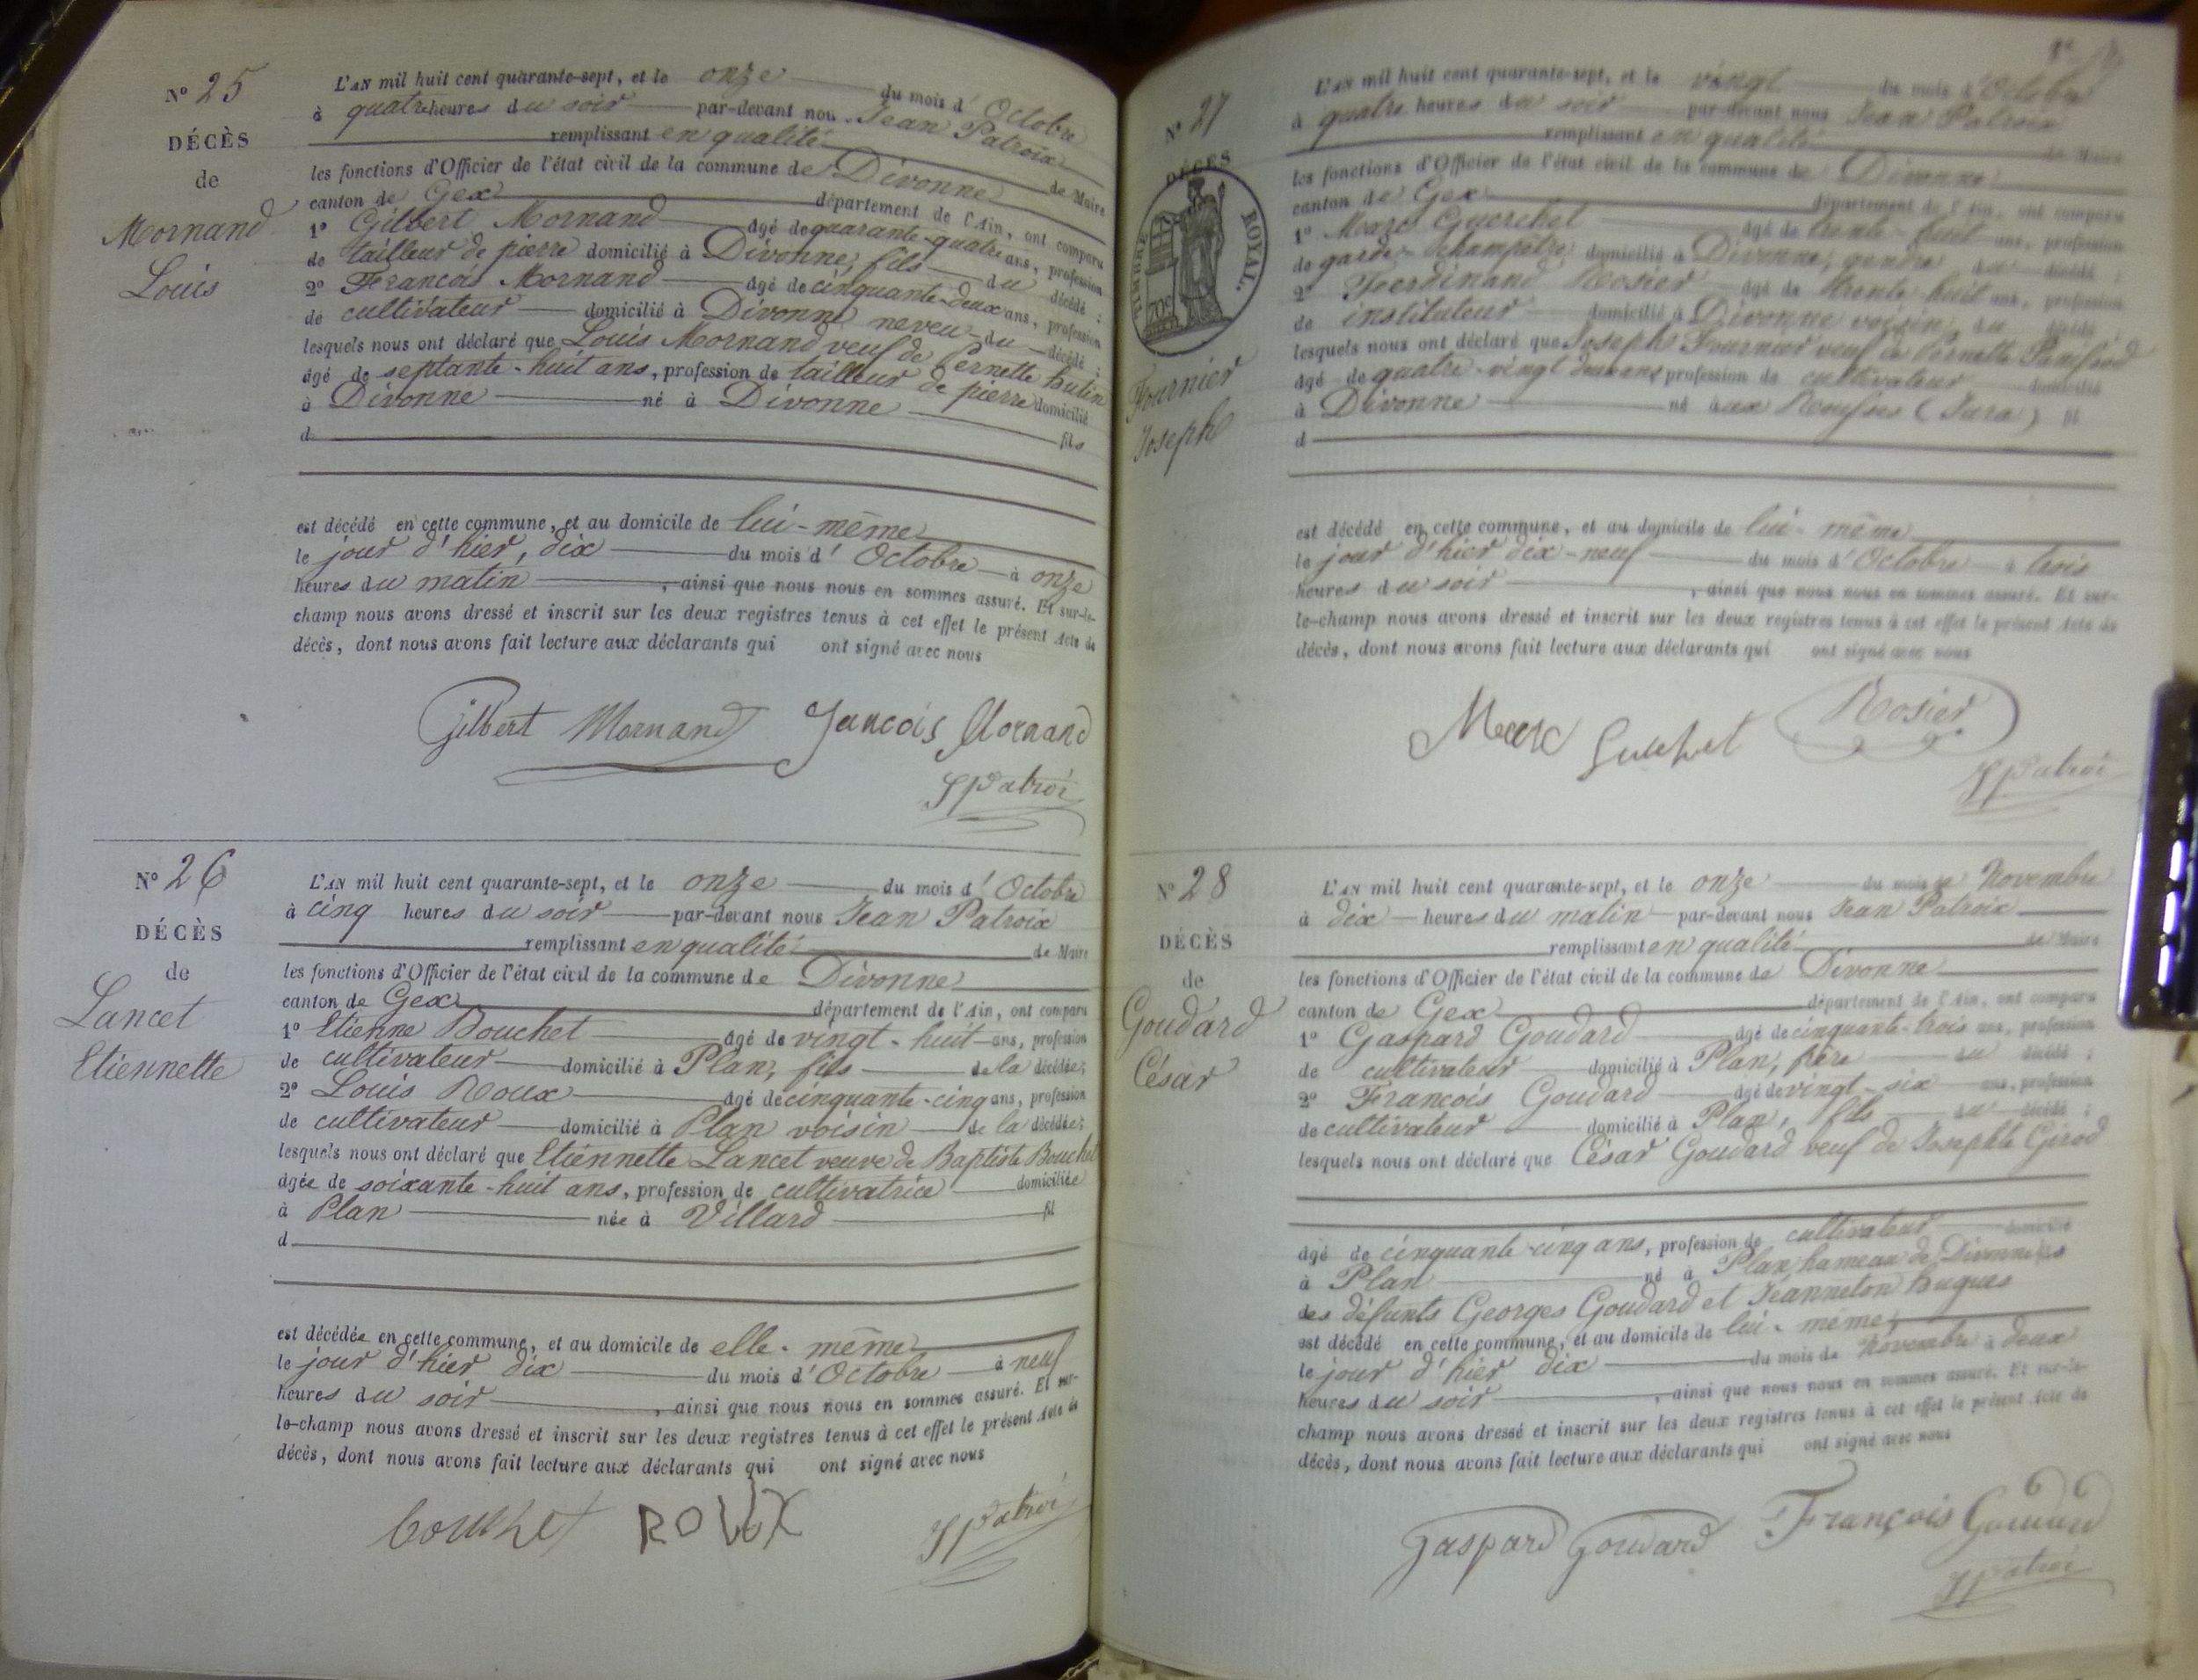 N° 25
DÉCÈS
de
Mornand
Louis
L'AN mil huit cent quarante-sept, et le onze du mois d'Octobre
à quatre heures du soir par-devant nous Jean Patroix
remplissant en qualité de Maire
les fonctions d'Officier de l'état civil de la commune de Divonne
canton de Gex département de l'Ain, ont comparu
1° Gilbert Mornand âgé de quarante-quatre ans, profession
de tailleur de pierre domicilié à Divonne, fils du décédé;
2° Francois Mornand âgé de cinquante-deux ans, profession
de cultivateur domicilié à Divonne neveu du décédé;
lesquels nous ont déclaré que Louis Mornand veuf de Pernette hutin
âgé de septante-huit ans, profession de tailleur de pierre domicilié
à Divonne né à Divonne fils
d
est décédé en cette commune, et au domicile de lui-même
le jour d'hier, dix du mois d'Octobre à onze
heures du matin, ainsi que nous nous en sommes assuré. Et sur-le-
champ nous avons dressé et inscrit sur les deux registres tenus à cet effet le présent Acte de
décès, dont nous avons fait lecture aux déclarants qui ont signé avec nous
Gilbert Mornand Francois Mornand
JPatroi
N° 26
DÉCÈS
de
Lancet
Etiennette
L'AN mil huit cent quarante-sept, et le onze du mois d'Octobre
à cinq heures du soir par-devant nous Jean Patroix
remplissant en qualité de Maire
les fonctions d'Officier de l'état civil de la commune de Divonne
canton de Gex département de l'Ain, ont comparu
1° Etienne Bouchet âgé de vingt-huit ans, profession
de cultivateur domicilié à Plan, fils de la décédée;
2° Louis Roux âgé de cinquante-cinq ans, profession
de cultivateur domicilié à Plan voisin de la décédée;
lesquels nous ont déclaré que Etiennette Lancet veuve de Baptiste Bouchet
âgée de soixante-huit ans, profession de cultivatrice domiciliée
à Plan née à Villard fil
d
est décédée en cette commune, et au domicile de elle-même
le jour d'hier dix du mois d'Octobre à neuf
heures du soir, ainsi que nous nous en sommes assuré. Et sur-
le-champ nous avons dressé et inscrit sur les deux registres tenus à cet effet le présent Acte de
décès, dont nous avons fait lecture aux déclarants qui ont signé avec nous
bouchet ROUX
JPatroi
N° 27
DÉCÈS
TIMBRE ROYAL.
70c
Fournier
Joseph
L'AN mil huit cent quarante-sept, et le vingt du mois d'Octobre
à quatre heures du soir par-devant nous Jean Patroix
remplissant en qualité de Maire
les fonctions d'Officier de l'état civil de la commune de Divonne
canton de Gex département de l'Ain, ont comparu
1° Marc Guerchet âgé de trente-huit ans, profession
de garde-champêtre domicilié à Divonne, gendre du décédé;
2° Ferdinand Rosier âgé de trente huit ans, profession
de instituteur domicilié à Divonne voisin du décédé;
lesquels nous ont déclaré que Joseph Fournier veuf de Pernette
âgé de quatre-vingt deux ans, profession de cultivateur domicilié
à Divonne né aux Rousses (Jura) fil
d
est décédé en cette commune, et au domicile de lui-même
le jour d'hier dix-neuf du mois d'Octobre à trois
heures du soir, ainsi que nous nous en sommes assuré. Et sur-
le-champ nous avons dressé et inscrit sur les deux registres tenus à cet effet le présent Acte de
décès, dont nous avons fait lecture aux déclarants qui ont signé avec nous
Marc Rosier
JPatroi
N° 28
DÉCÈS
de
Goudard
César
L'AN mil huit cent quarante-sept, et le onze du mois de Novembre
à dix heures du matin par-devant nous Jean Patroix
remplissant en qualité de Maire
les fonctions d'Officier de l'état civil de la commune de Divonne
canton de Gex département de l'Ain, ont comparu
1° Gaspard Goudard âgé de cinquante-trois ans, profession
de cultivateur domicilié à Plan, frère du décédé;
2° Francois Goudard âgé de vingt-six ans, profession
de cultivateur domicilié à Plan, fils du décédé;
lesquels nous ont déclaré que César Goudard veuf de Josephte Girod
âgé de cinquante-cinq ans, profession de cultivateur domicilié
à Plan né à Plan hameau de Divonne fils
des défunts Georges Goudard et Jeanneton hugues
est décédé en cette commune, et au domicile de lui-même
le jour d'hier dix du mois de Novembre à deux
heures du soir, ainsi que nous nous en sommes assuré. Et sur-le-
champ nous avons dressé et inscrit sur les deux registres tenus à cet effet le présent Acte de
décès, dont nous avons fait lecture aux déclarants qui ont signé avec nous
Gaspard Goudard François Goudard
JPatroi